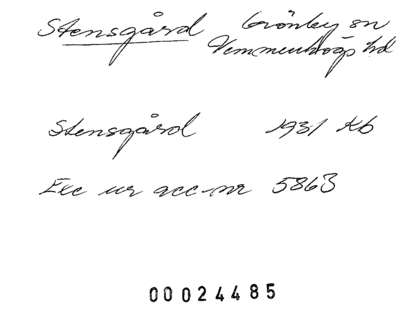 Stensgård Grönby sn
Vemmenhögs hd
Stensgård 1931 Kb
Exc ur acc-nr 5863
00024485